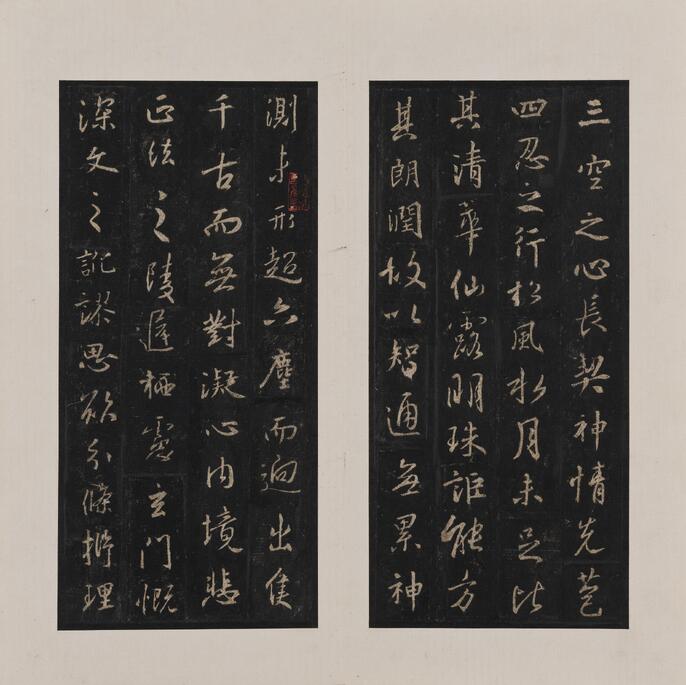 三空之心長契神情先苞
四忍之行松風水月未足比
其清華仙露明珠詎能方
其朗潤故以智通無累神
測未形超六塵而迥出隻
千古而無對凝心內境悲
正法之陵遲栖慮玄門慨
深文之訛謬思欲分條析理